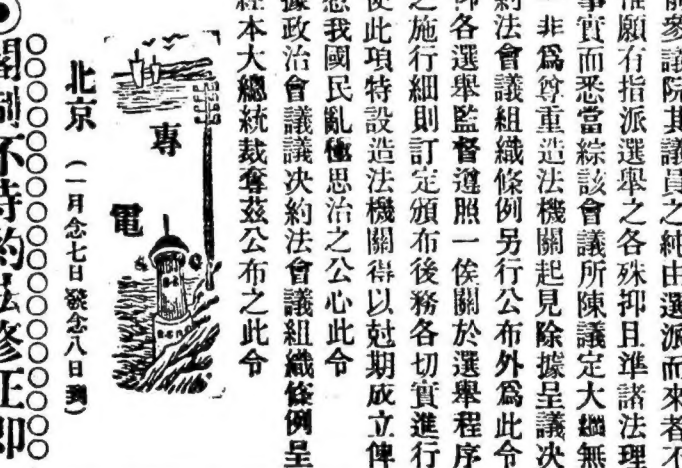 前參議院其議員之純由選派而來者不
願有指派選舉之各殊抑且準諸法理
事實而悉當綜該會議所陳議定大綱無
一非爲尊重造法機關起見除據呈議决
約法會議組織條例另行公布外爲此令
仰各選舉監督遵照一俟關於選舉程序
之施行細則訂定頒布後務各切實進行
使此項特設造法機關得以尅期成立俾
我國民亂極思治之公心此令
據政治會議議决約法會議組織條例呈
經本大總統裁奪茲公布之此令
專電
北京（一月念七日發念八日到）
閣制不待約法修正即